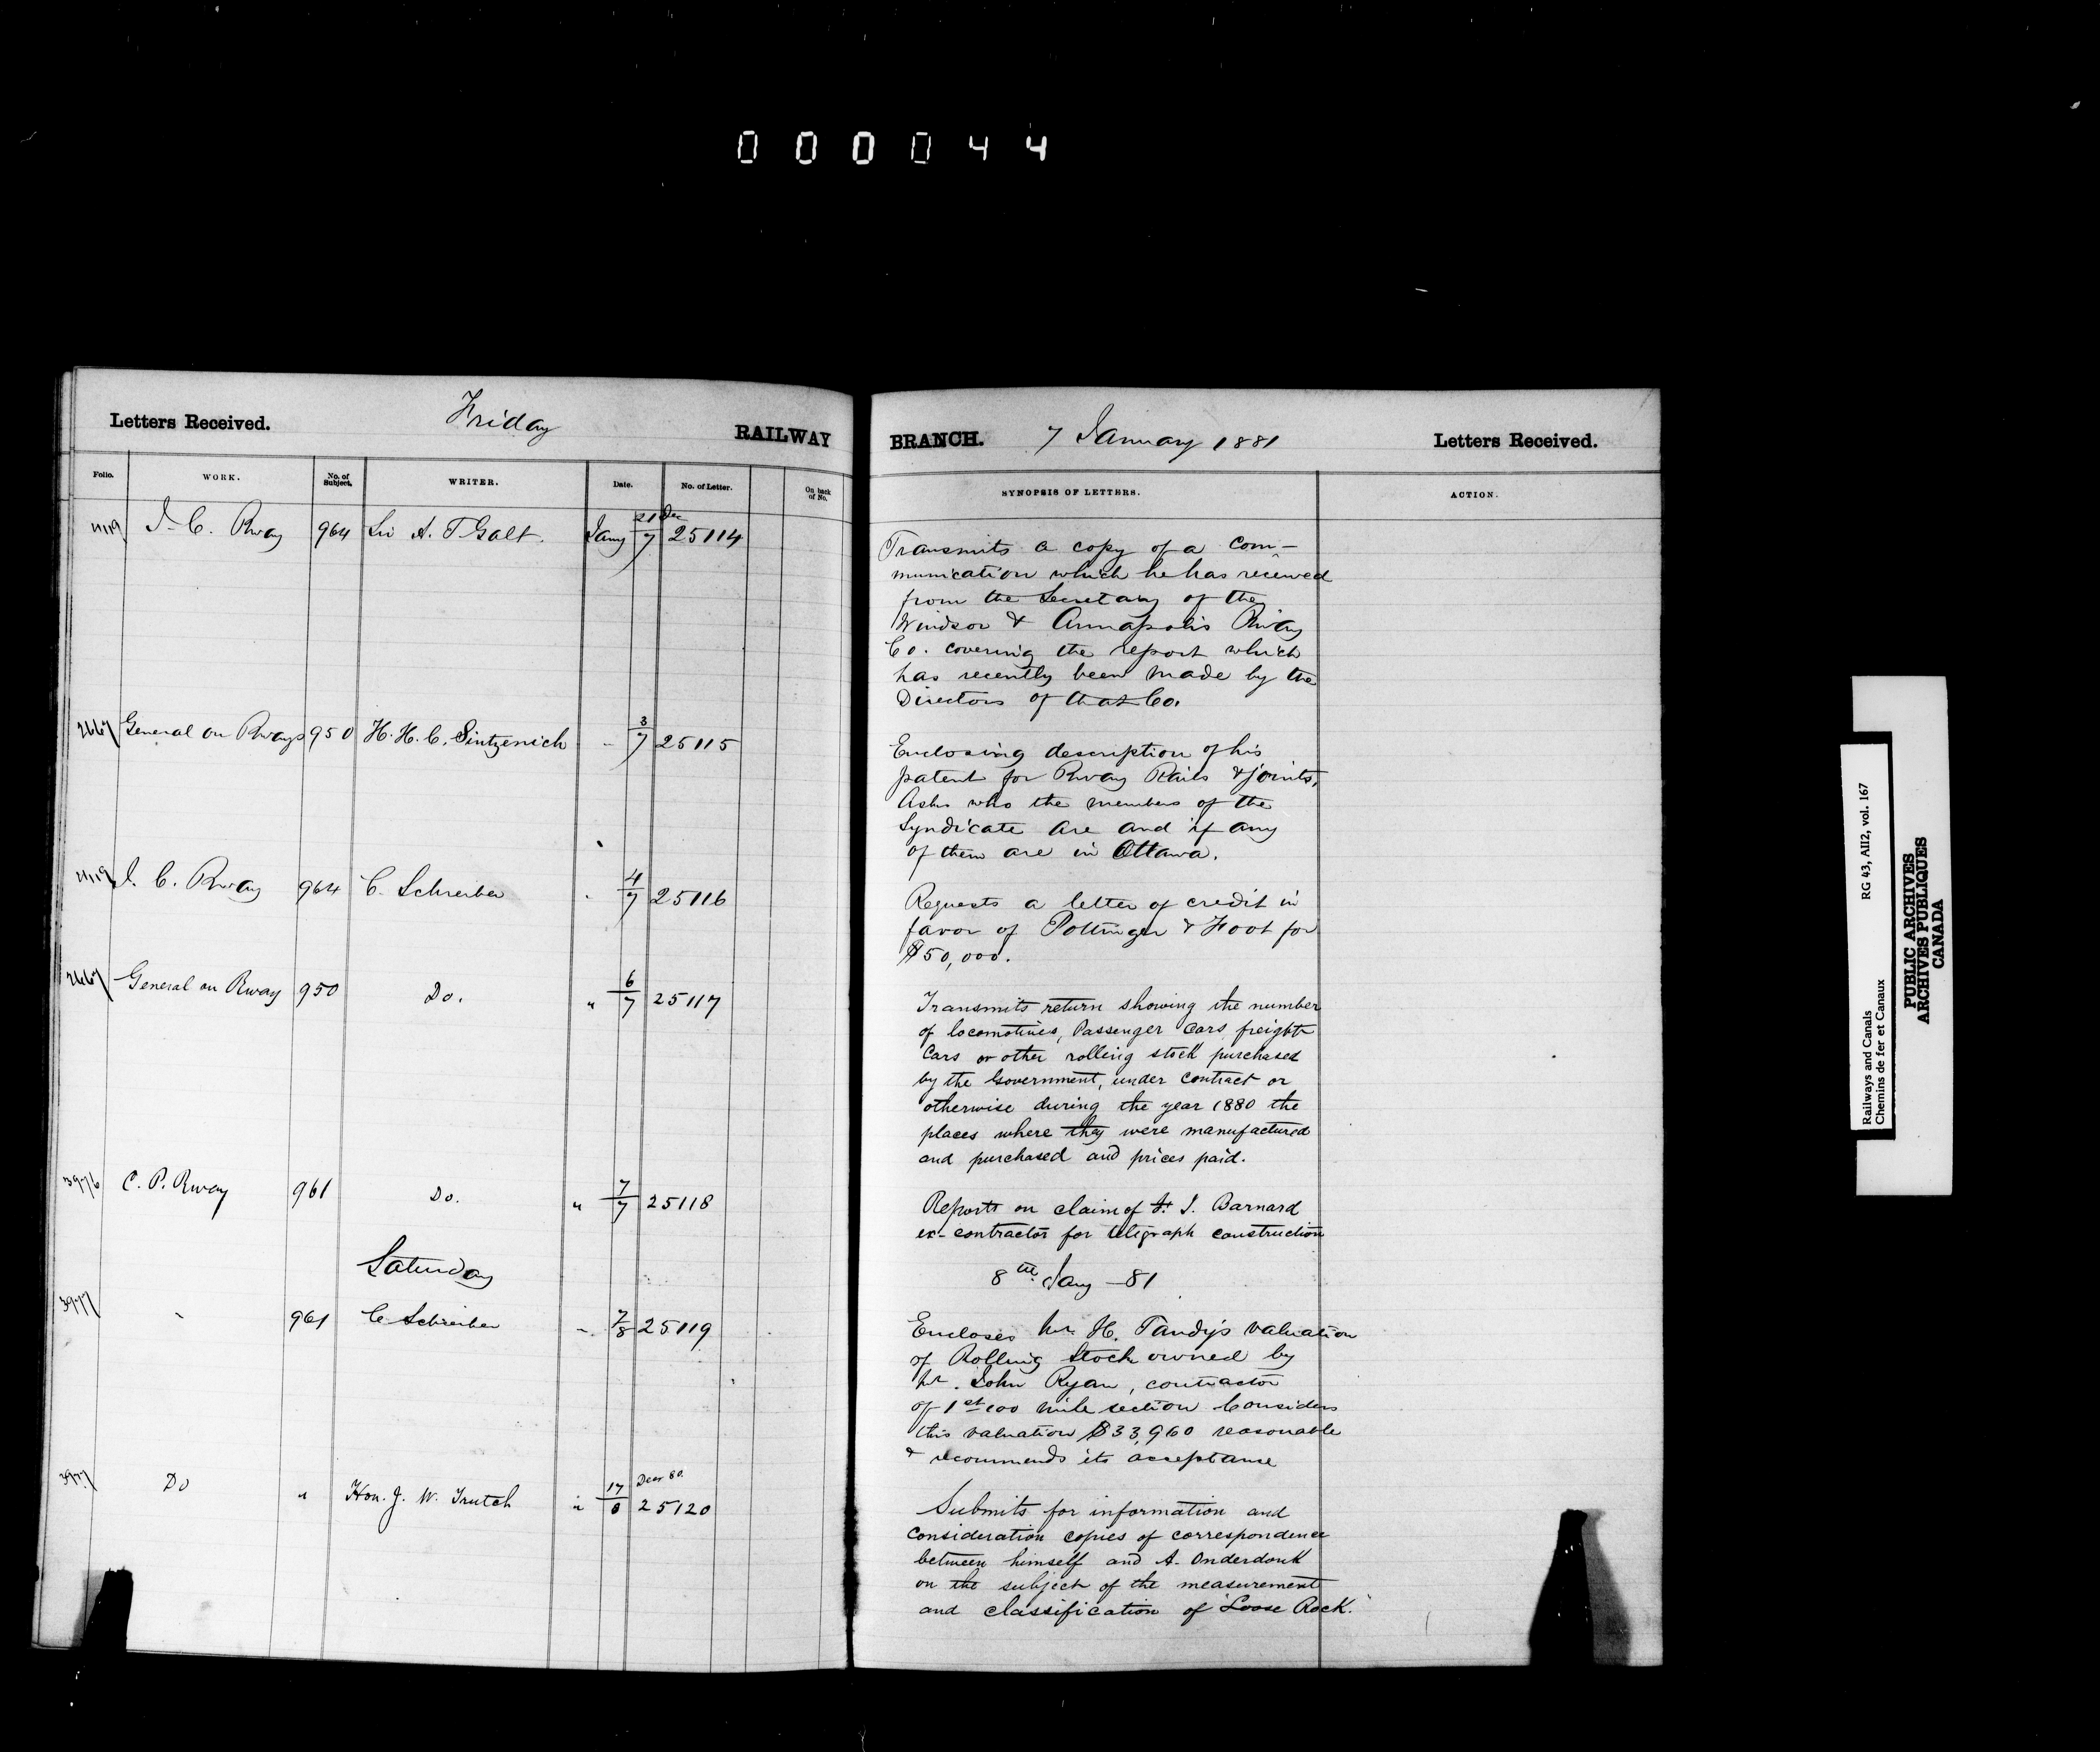 000044
Letters Received. Friday RAILWAY
Folio. WORK. No. of Subject. WRITER. Date. No. of Letter. On back of No.
I. C. Rway 964 Sir A. T Galt. Jany 21 Dec / 7 25114
2667 General on Rways 950 H. H. C. Sintzenich " 3/7 25115
I. C. Rway 964 C. Schreiber " 4/7 25116
2667 General on Rway 950 Do. " 6/7 25117
3976 C. P. Rway 961 Do. " 7/7 25118
Saturday
3977 " 961 C Schreiber " 7/8 25119
3977 Do " Hon. J. W. Trutch " 17/8 Decr 80. 25120
BRANCH. 7 January 1881 Letters Received.
SYNOPSIS OF LETTERS. ACTION.
Transmits a copy of a com-
munication which he has received
from the Secretary of the
Windsor & Annapolis Rway
Co. covering the report which
has recently been made by the
Directors of that Co.
Enclosing description of his
patent for Rway Rails & joints,
Asks who the members of the
Syndicate are and if any
of them are in Ottawa.
Requests a letter of credit in
favor of Pottinger & Foot for
$50,000.
Transmits return showing the number
of locomotives, Passenger Cars freight
Cars or other rolling stock purchased
by the Government, under contract or
otherwise during the year 1880 the
places where they were manufactured
and purchased and prices paid.
Reports on claim of F. J. Barnard
ex-contractor for telegraph construction
8th Jany -81
Encloses Mr. H. Tandy's valuation
of Rolling Stock owned by
Mr. John Ryan, contractor
of 1st 100 mile section Considers
this valuation $33,960 reasonable
& recommends its acceptance
Submits for information and
consideration copies of correspondence
between himself and A. Onderdonk
on the subject of the measurement
and classification of "Loose Rock."
Railways and Canals RG 43, AII2, vol. 167
Chemins de fer et Canaux
PUBLIC ARCHIVES
ARCHIVES PUBLIQUES
CANADA